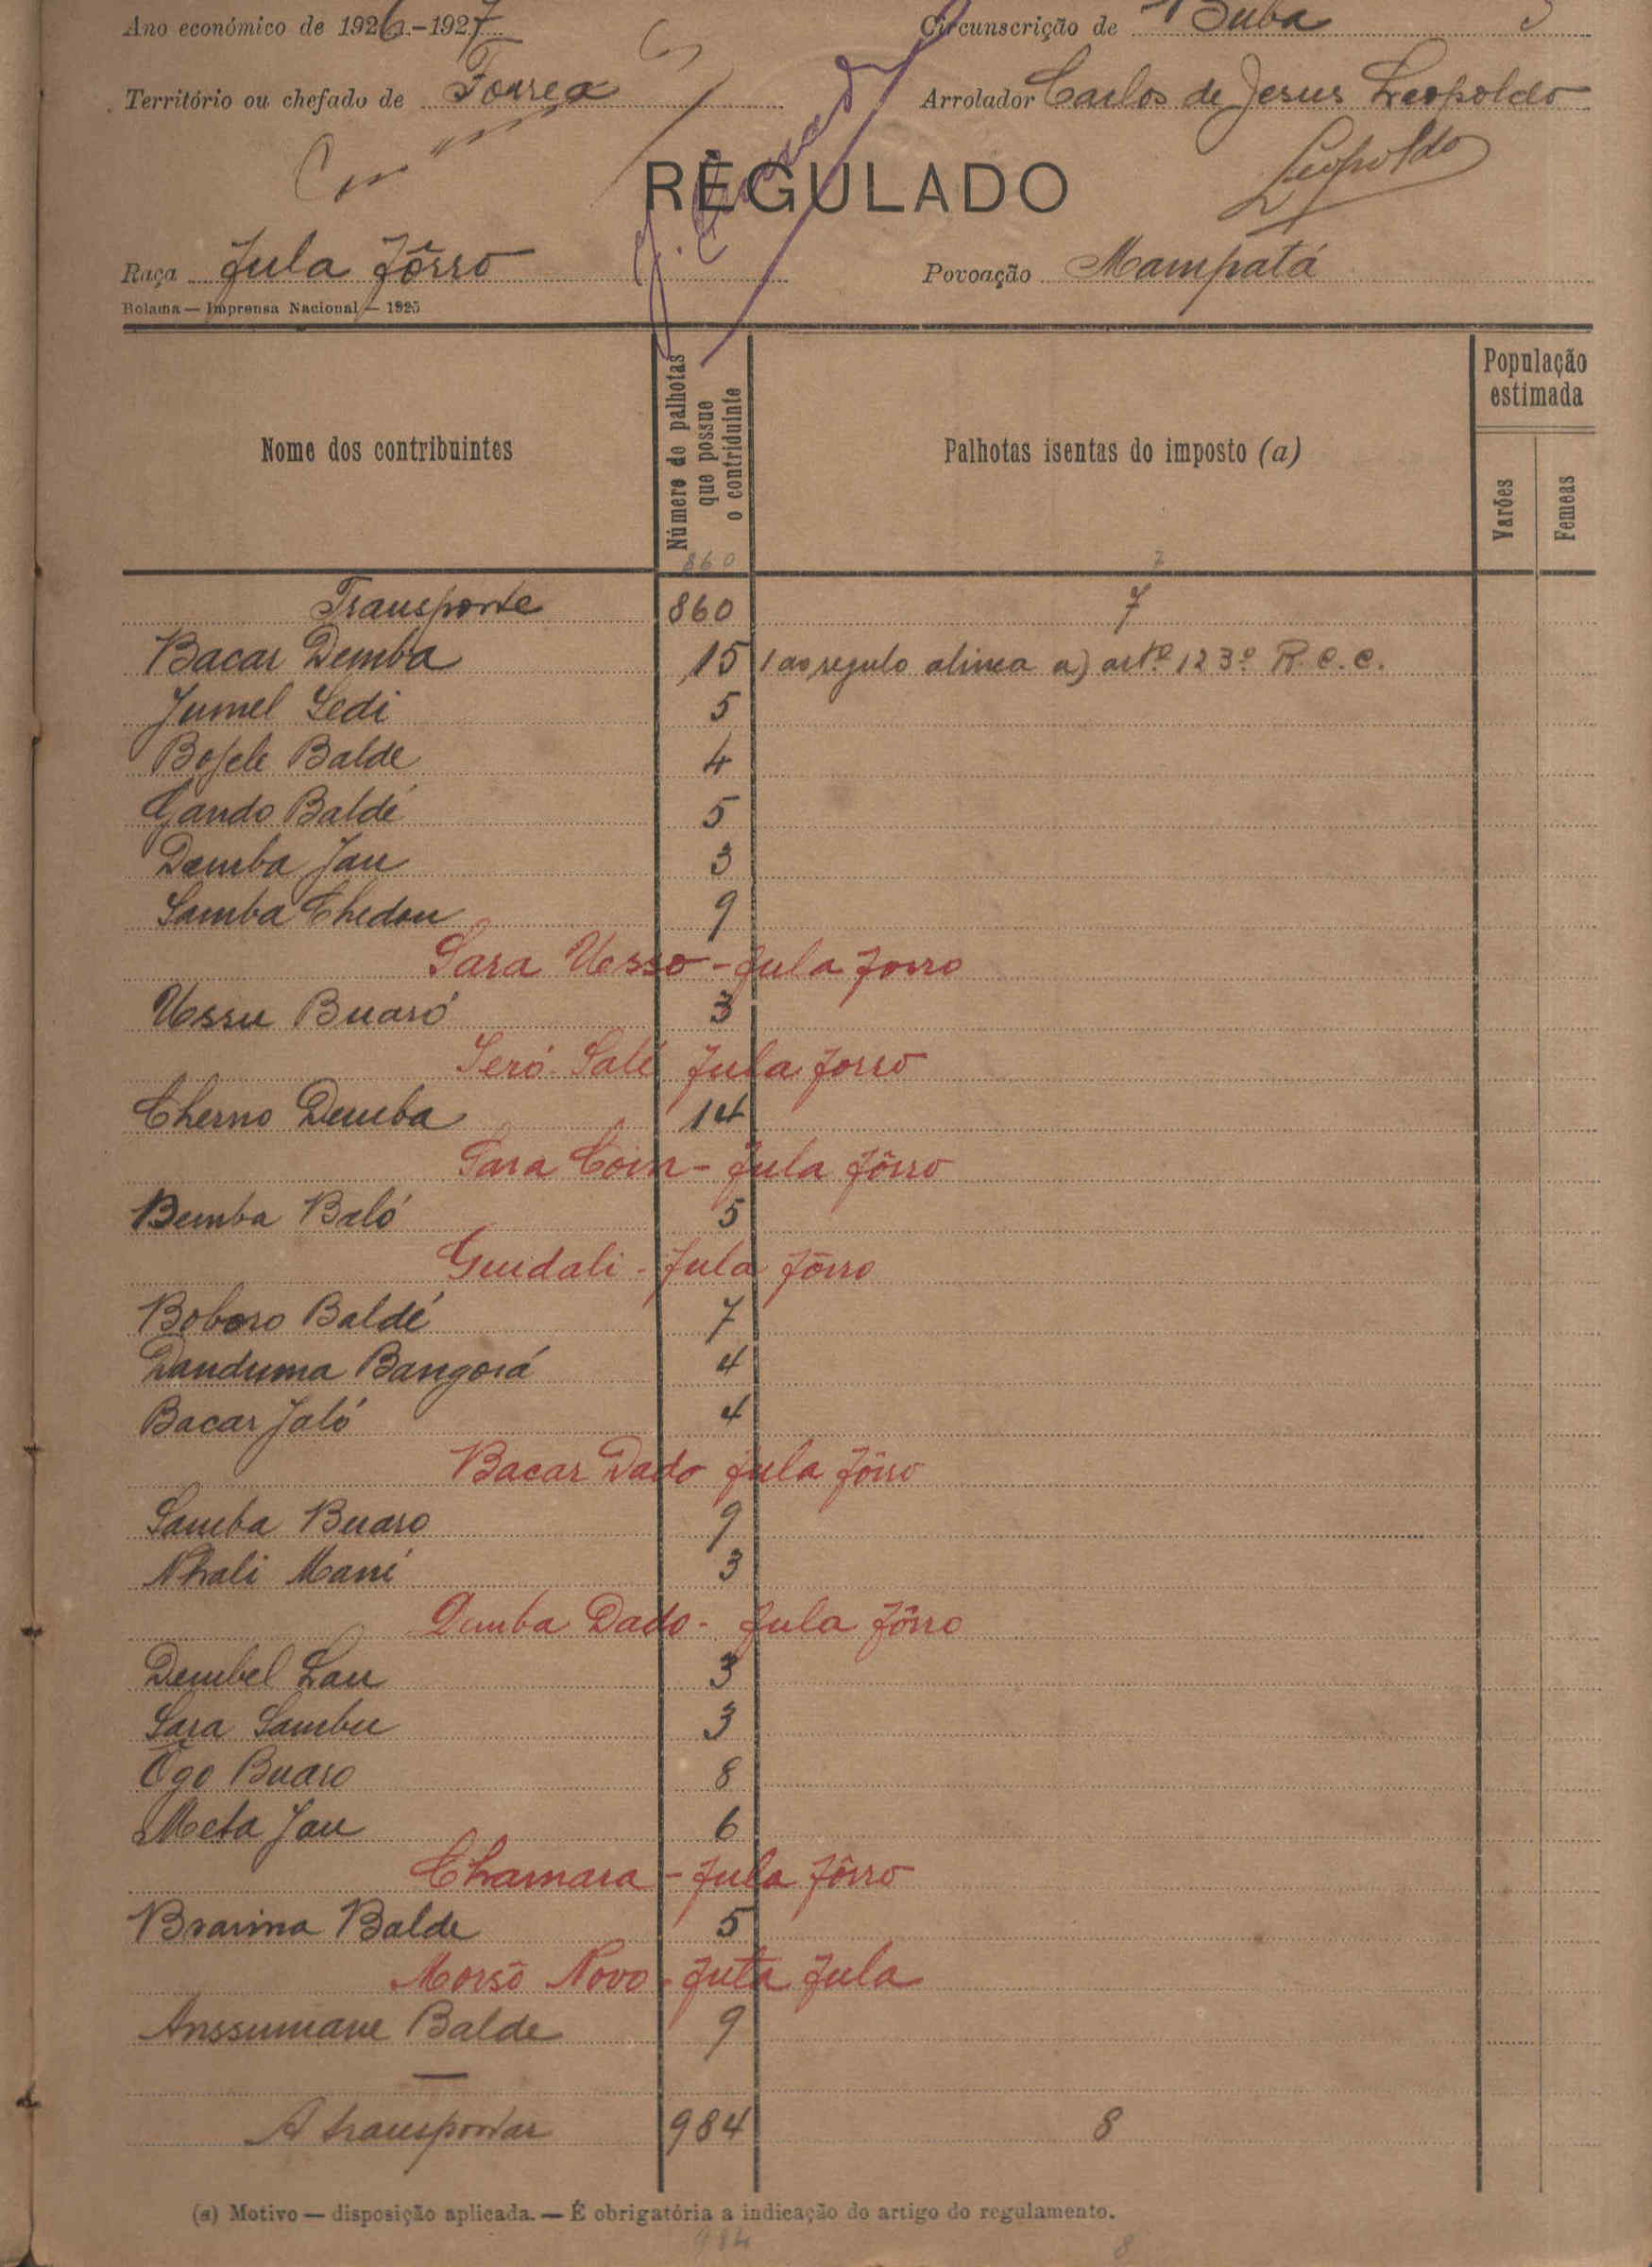 Ano económico de 1926-1927 Circunscrição de Buba
Território ou chefado de Forrea Arrolador Carlos de Jesus Leopoldo
Leopoldo
REGULADO
Raça Fula Fôrro Povoação Mampatá
Bolama — Imprensa Nacional — 1925
Nome dos contribuintes
Número de palhotas que possue o contriduinte
Palhotas isentas do imposto (a)
População estimada
Varões
Femeas
860 7
Transporte 860 7
Bacar Demba 15 1 ao regulo alinea a) artº 123º R. C. C.
Jumel Sedi 5
Bofele Balde 4
Gando Baldé 5
Demba Jau 3
Samba Chedou 9
Sara Usso - Fula forro
Ussu Buaró 3
Seró Sali Fula forro
Cherno Demba 14
Sara Coin - Fula fôrro
Bemba Baló 5
Guidali - Fula fôrro
Boboro Baldé 7
Danduma Bangorá 4
Bacar Jaló 4
Bacar Dado Fula fôrro
Samba Buaro 9
Nhali Mané 3
Demba Dado - Fula fôrro
Dembel Lau 3
Sara Sambu 3
Ogo Buaro 8
Meta Jau 6
Chamara - Fula fôrro
Braima Balde 5
Morsô Novo - Futa Fula
Anssumane Balde 9
A transportar 984 8
(a) Motivo — disposição aplicada. — É obrigatória a indicação do artigo do regulamento.
984 8